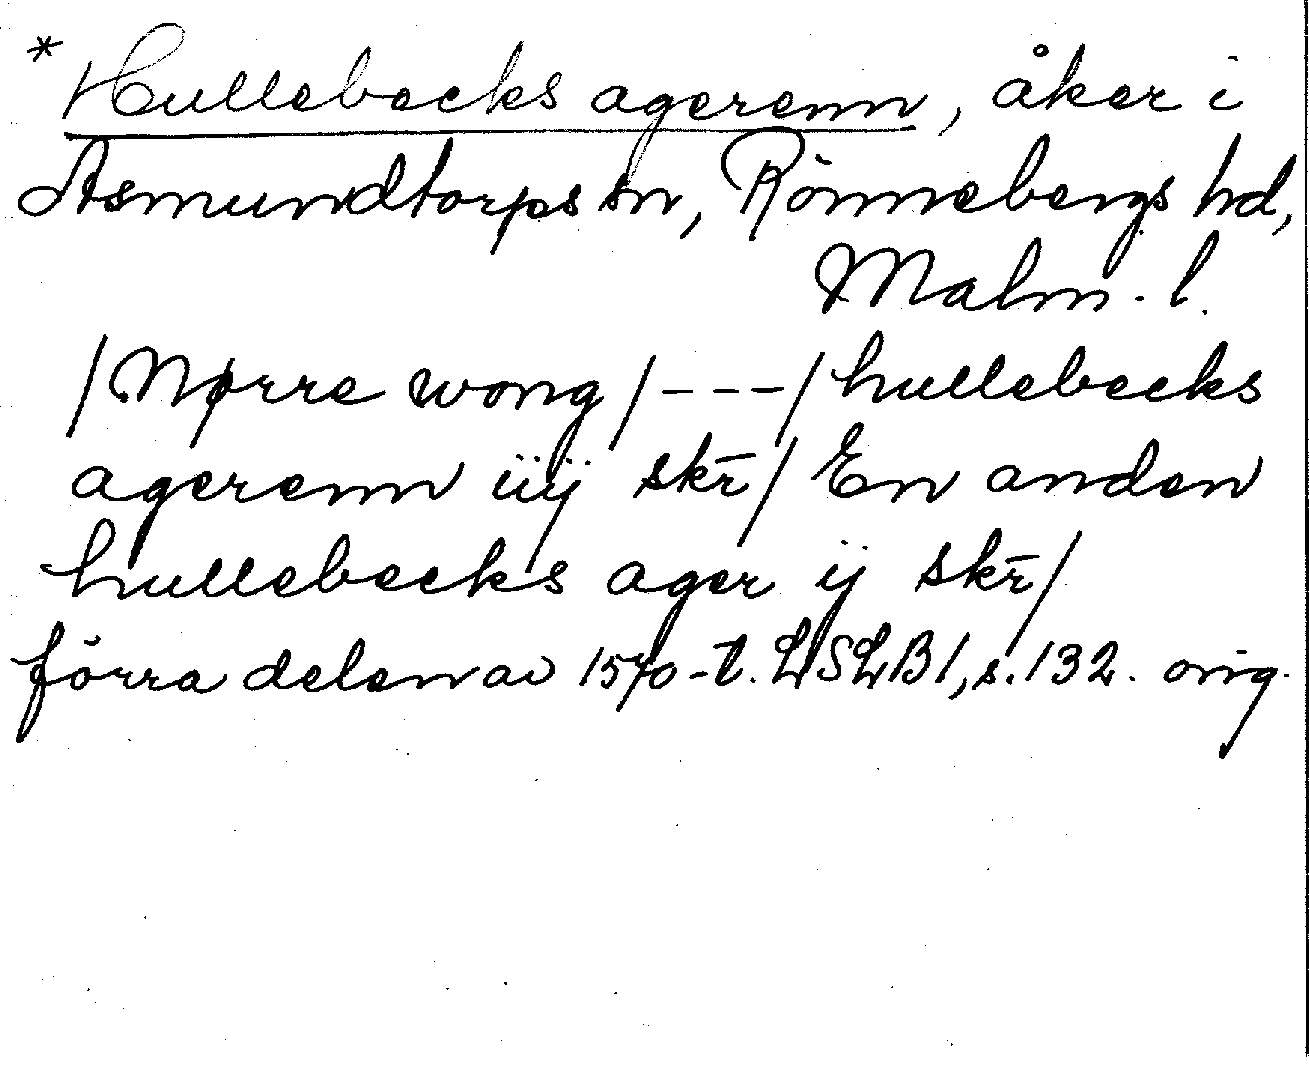 * Hullebecks agerenn, åker i
Asmundtorps sn, Rönnebergs hd,
Malm. l.
/ Nørre wong / --- / hullebecks
agerenn iiij skr̄ / En anden
hullebecks ager ij skr̄ /
förra delen av 1570-t. LSLB1, s. 132. orig.